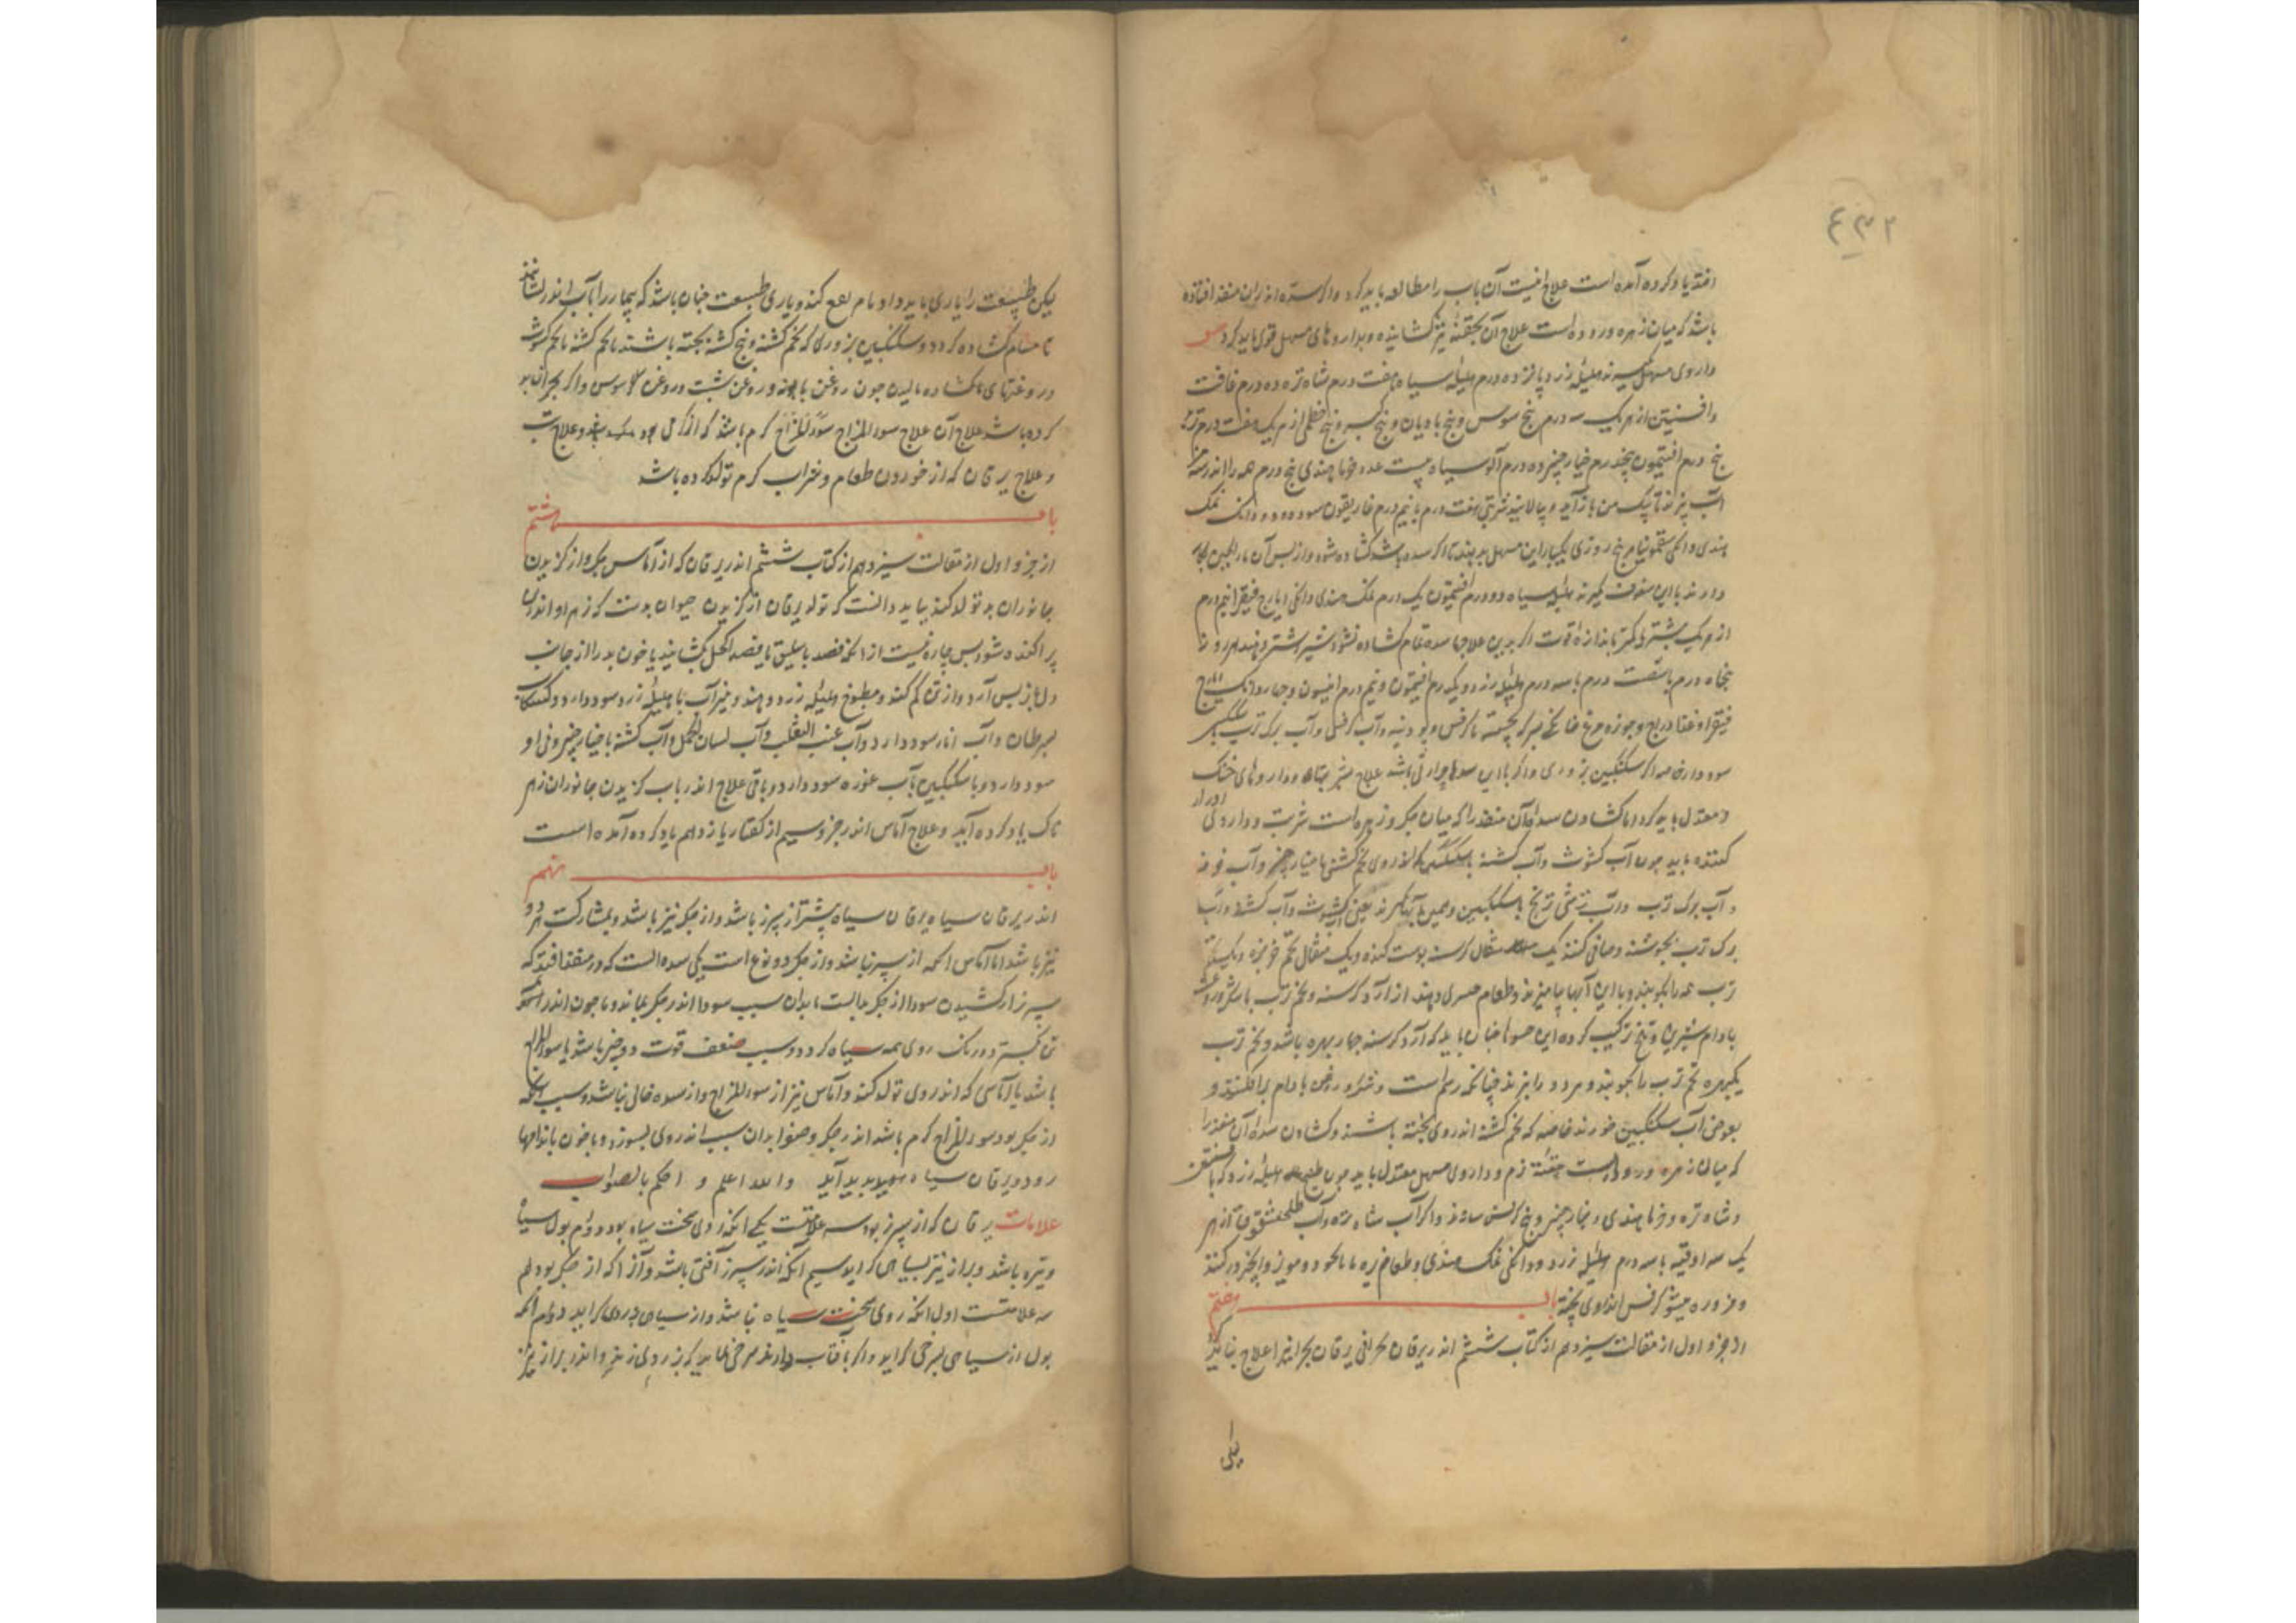 ۴۳۲
افتد یاد کرده آمده است علاج اینست آن باب را مطالعه باید کرد و اگر سده اندران منفذ افتاده
باشد که میان زهره و روده است علاج آن بحقنه تیز کشاینده و بداروهای مسهل قوی باید کرد
داروی مسهل هلیله زرد پانزده درم هلیله سیاه هفت درم شاه تره ده درم غافت
وافسنتین از هر یک سه درم بیخ سوس و بیخ بادیان و بیخ کبر و بیخ خطمی از هر یک هفت درم
پنج درم افتیمون پنجدرم خیار چنبر ده درم آلو سیاه بیست عدد خرما هندی پنج درم همه را اندر سه من
آب پزند تا بیک من باز آید و بپالایند شربتی هفت درم با نیم درم غاریقون سوده و دو دانک نمک
هندی و دانکی سقمونیا هر پنج روزی یکبار این مسهل بدهند تا اکر سده باشد کشاده شود و از پس آن ماء الجبن بکار
دارند با این سفوف بگیرند هلیله سیاه دو درم افتیمون یک درم نمک هندی دانکی ایارج فیقرا نیم درم
از هر یک بیشتر یا کمتر باندازه قوت اگر بدین علاجها سده تمام کشاده نشود شیر اشتر دهند هر روز تا
پنجاه درم یا شصت درم با سه درم هلیله زرد و یکدرم افتیمون و نیم درم انیسون و چهار دانک ایارج
فیقرا و غذا دراج و جوزه مرغ خانکی بسرکه پخته با کرفس و پودینه و آب کرفس و آب برک ترب
سود دارد خاصه اکر سکنکبین بزوری و اکر با این سدها حرارتی باشد علاج بشربتها و داروهای خنک
و معتدل باید کرد اما کشادن سدهٔ آن منفذ را که میان جکر و زهره است شربت و داروی ادرار
کننده باید چون آب کشوث و آب کشنه با سکنکبین که اندر وی تخم کشنی با خیار چنبر و آب
و آب برک ترب و آب ترشی ترنج با سکنکبین و همین آبها کیرند یعنی آب کشوث و آب کشنه و آب
برک ترب بجوشند و صافی کنند یک مثقال کرسنه پوست کنده و یک مثقال تخم خربزه و یک مثقال تخم
ترب همه را بکوبند و با این آبها بیامیزند و طعام حسوی دهند از آرد کرسنه و تخم ترب با شکر و روغن
بادام شیرین و تلخ ترکیب کرده این حسوها چنان باید که آرد کرسنه چهار بهره باشد و تخم ترب
یکبهره تخم ترب را بکوبند و هر دو را بپزند چنانکه رسم است و شکر و روغن بادام برافکنند و
بعوض آب سکنکبین خورند خاصه که تخم کشنه اندروی پخته باشند و کشادن سدهٔ آن منفذ را
که میان زهره و روده است حقنه نرم و داروی مسهل معتدل باید چون طبیخ هلیله زرد که با افسنتین
و شاه تره و خرما هندی و خیار چنبر و بیخ کرفس سازند و اکر آب شاه تره و آب طلحشقوق از هر
یک سه اوقیه با سه درم هلیله زرد و دانکی نمک هندی و طعام زیره با با نخود و مویز و انجیر در کنند
و مزوره میشو کرفس اندروی پخته باب هفتم
از جزو اول از مقالت سیزدهم از کتاب ششم اندر یرقان بحرانی یرقان بحرانی را علاج نباید
لیکن طبیعت را یاری باید داد تا مادام دفع کند و یاری طبیعت چنان باشد که بیمار را بآب اندر نشانند
تا مسام کشاده کردد و سکنکبین بزوری که تخم کشنه و بیخ کشنه پخته باشند با تخم کشنه با تخم کشوث
و روغنهای کشاده مالیدن چون روغن بابونه و روغن شبت و روغن سوسن و اکر بحران بد
کرده باشد علاج آن علاج سوء المزاج کرم باشد
و علاج یرقان که از خوردن طعام و شراب کرم تولد کرده باشد
باب هشتم
از جزو اول از مقالت سیزدهم از کتاب ششم اندر یرقان که از آماس جکر و از کزیدن
جانوران بد تولد کند بباید دانست که تولد یرقان از کزیدن حیوان بدست که زهر او اندر تن
پراکنده شود پس چاره نیست از آنکه فصد باسلیق یا فصد اکحل بکشایند یا خون بد را از جانب
دل باز پس آرد و از تن کم کند و مطبوخ هلیله زرد دهند و نیز آب با هلیله زرد سود دارد
سرطان و آب انار سود دارد و آب عنب الثعلب و آب لسان الحمل و آب کشنه با خیار چنبر
سود دارد و با سکنکبین یا آب غوره سود دارد و باقی علاج اندر باب کزیدن جانوران زهر
ناک یاد کرده آید و علاج آماس اندر جزو سیم از کفتار یازدهم یاد کرده آمده است
باب نهم
اندر یرقان سیاه یرقان سیاه بیشتر از سپرز باشد و از جکر نیز باشد و بمشارکت هر دو
نیز باشد اما آنکه از سپرز باشد و از جکر دو نوع است یکی سده است که در منفذ افتد که
سپرز از کشیدن سودا از جکر بدان سبب سودا اندر جکر بماند و با خون اندر همه
تن بکسترد و رنک روی همه سیاه کردد و سبب ضعف قوت دو چیز باشد یا سوء المزاج
باشد یا آماسی که اندر وی تولد کند و آماس نیز از سوء المزاج و از سده خالی نباشد و سبب آنکه
از جکر بود سوء المزاج کرم باشد اندر جکر و صفرا بدان سبب اندروی بسوزد و با خون باندامها
رود و یرقان سیاه پدید آید والله اعلم و احکم بالصواب
علامات یرقان که از سپرز بود سه علامتست یکی آنکه روی سخت سیاه بود دوم بول سیاه
و تیره باشد و براز نیز بسیاهی کراید سیم آنکه اندر سپرز آفتی باشد و آن را که از جکر بود هم
سه علامتست اول آنکه روی سخت سیاه نباشد و از سیاهی بزردی کراید دوم آنکه
بول از سیاهی بسرخی کراید و اکر بآفتاب دارند سرخی نماید که بزردی زند و اندر براز نیز
یکی